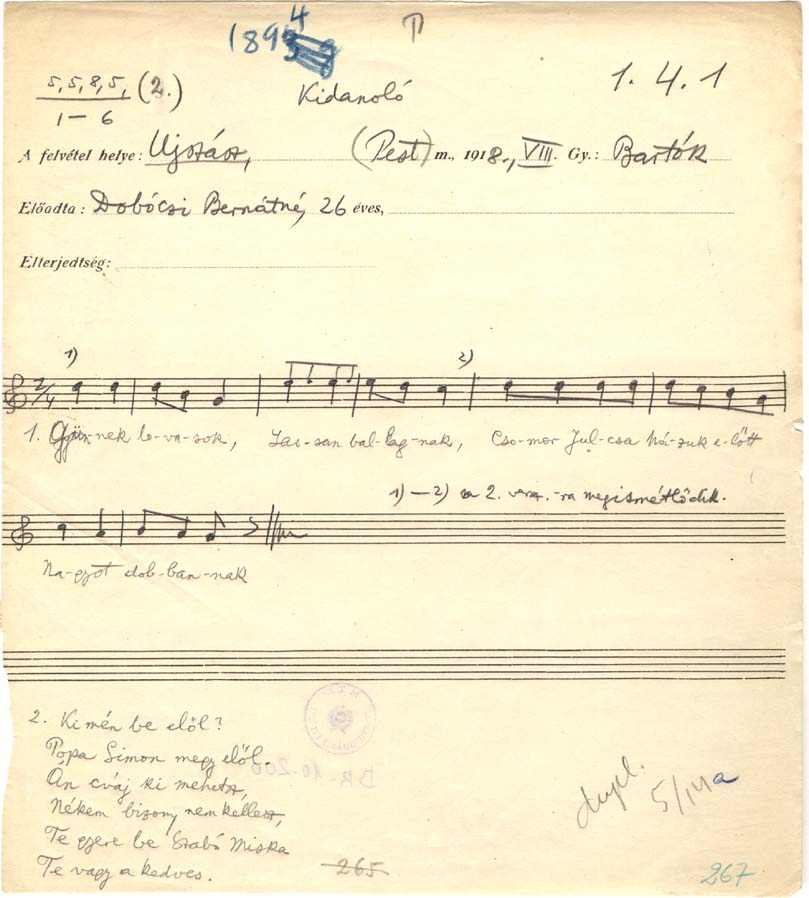 1894
5, 5, 8, 5, (2.)
1 – 6
Kidanoló
1. 4. 1
A felvétel helye: Ujszász, (Pest) m., 1918., VIII. Gy.: Bartók
Előadta: Dobóczi Bernátné, 26 éves,
Elterjedtség:
1) 2)
2/4
1. Gyünnek lo-va-sok, Las-san bal-lag-nak, Cso-mor Jul-csa há-zuk e-lőtt
1) – 2) a 2. versz.-ra megismétlődik.
Na-gyot dob-ban-nak
2. Ki mén be elől?
Pópa Simon megy elől.
Án cváj ki mehetsz,
Nékem bizony nem kellesz,
Te gyere be Szabó Miska
Te vagy a kedves.
BR-10.200
dupl.
5/141a
265
267